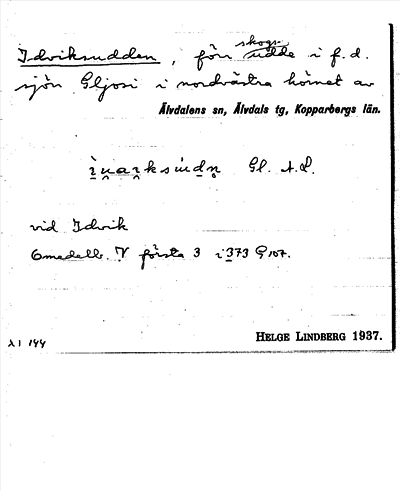 Idviksudden, förr skogsudde i f. d.
sjön Gljosi i nordvästra hörnet av
Älvdalens sn, Älvdals tg, Kopparbergs län.
Gl. A. L.
vid Idvik
Omedelb. V första 3 i 373 G 107.
HELGE LINDBERG 1937.
λ1 144